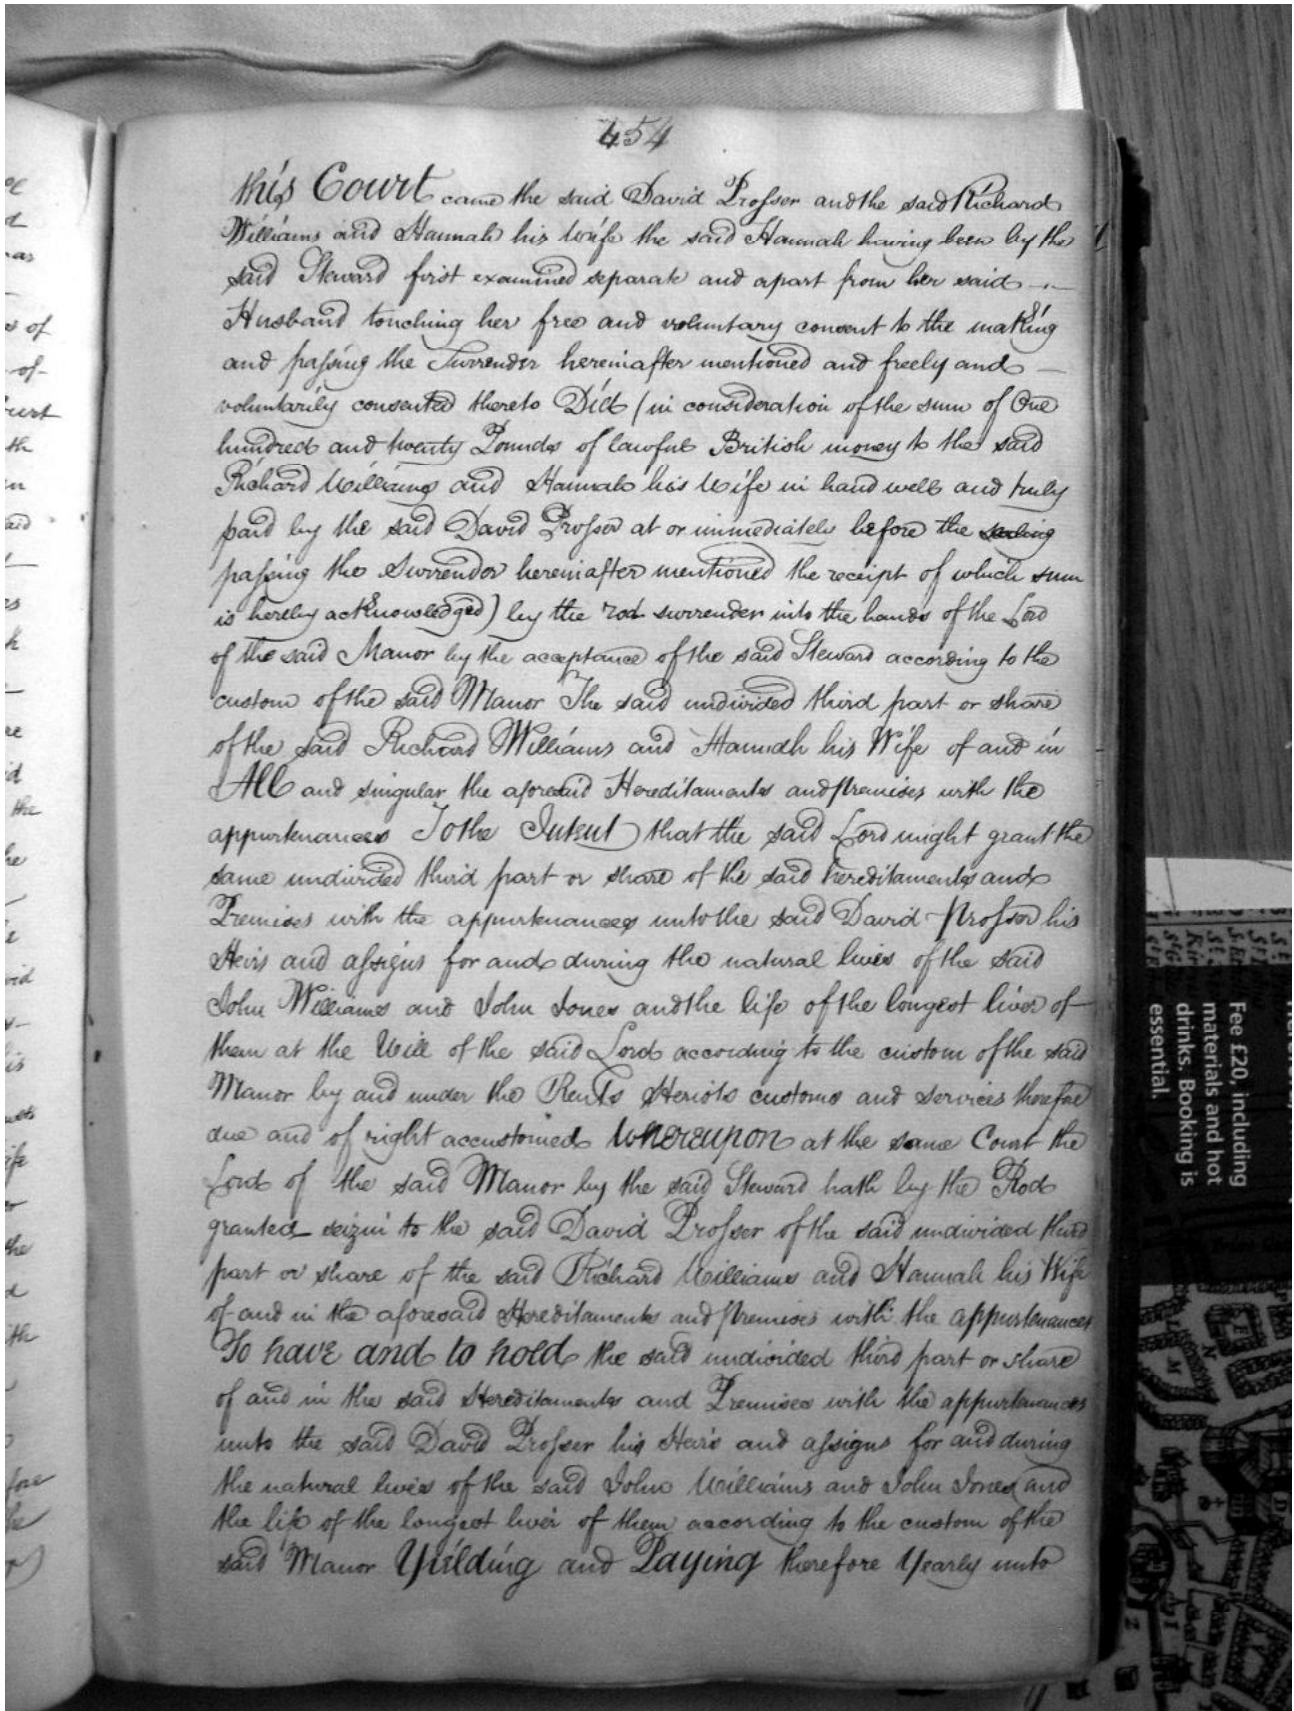 454
this Court came the said David Prosser and the said Richard
Williams and Hannah his wife the said Hannah having been by the
said Steward first examined separate and apart from her said
Husband touching her free and voluntary consent to the making
and passing the Surrender hereinafter mentioned and freely and
voluntarily consented thereto Did (in consideration of the sum of One
hundred and twenty Pounds of lawful British money to the said
Richard Williams and Hannah his Wife in hand well and truly
paid by the said David Prosser at or immediately before the
passing the Surrender hereinafter mentioned the receipt of which sum
is hereby acknowledged) by the rod surrender into the hands of the Lord
of the said Manor by the acceptance of the said Steward according to the
custom of the said Manor The said undivided third part or share
of the said Richard Williams and Hannah his Wife of and in
All and singular the aforesaid Hereditaments and premises with the
appurtenances To the Intent that the said Lord might grant the
same undivided third part or share of the said hereditaments and
Premises with the appurtenances unto the said David Prosser his
Heirs and assigns for and during the natural lives of the said
John Williams and John Jones and the life of the longest liver of
them at the Will of the said Lord according to the custom of the said
Manor by and under the Rents Heriots customs and services therefore
due and of right accustomed Whereupon at the same Court the
Lord of the said Manor by the said Steward hath by the Rod
granted seizin to the said David Prosser of the said undivided third
part or share of the said Richard Williams and Hannah his Wife
of and in the aforesaid Hereditaments and premises with the appurtenances
To have and to hold the said undivided third part or share
of and in the said Hereditaments and Premises with the appurtenances
unto the said David Prosser his Heirs and assigns for and during
the natural lives of the said John Williams and John Jones and
the life of the longest liver of them according to the custom of the
said Manor Yielding and Paying therefore Yearly unto
Fee £20, including
materials and hot
drinks. Booking is
essential.